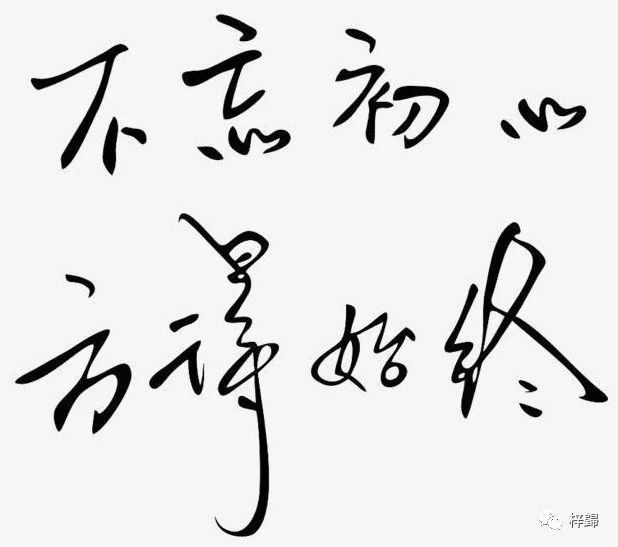 不忘初心
方得始终
梓歸